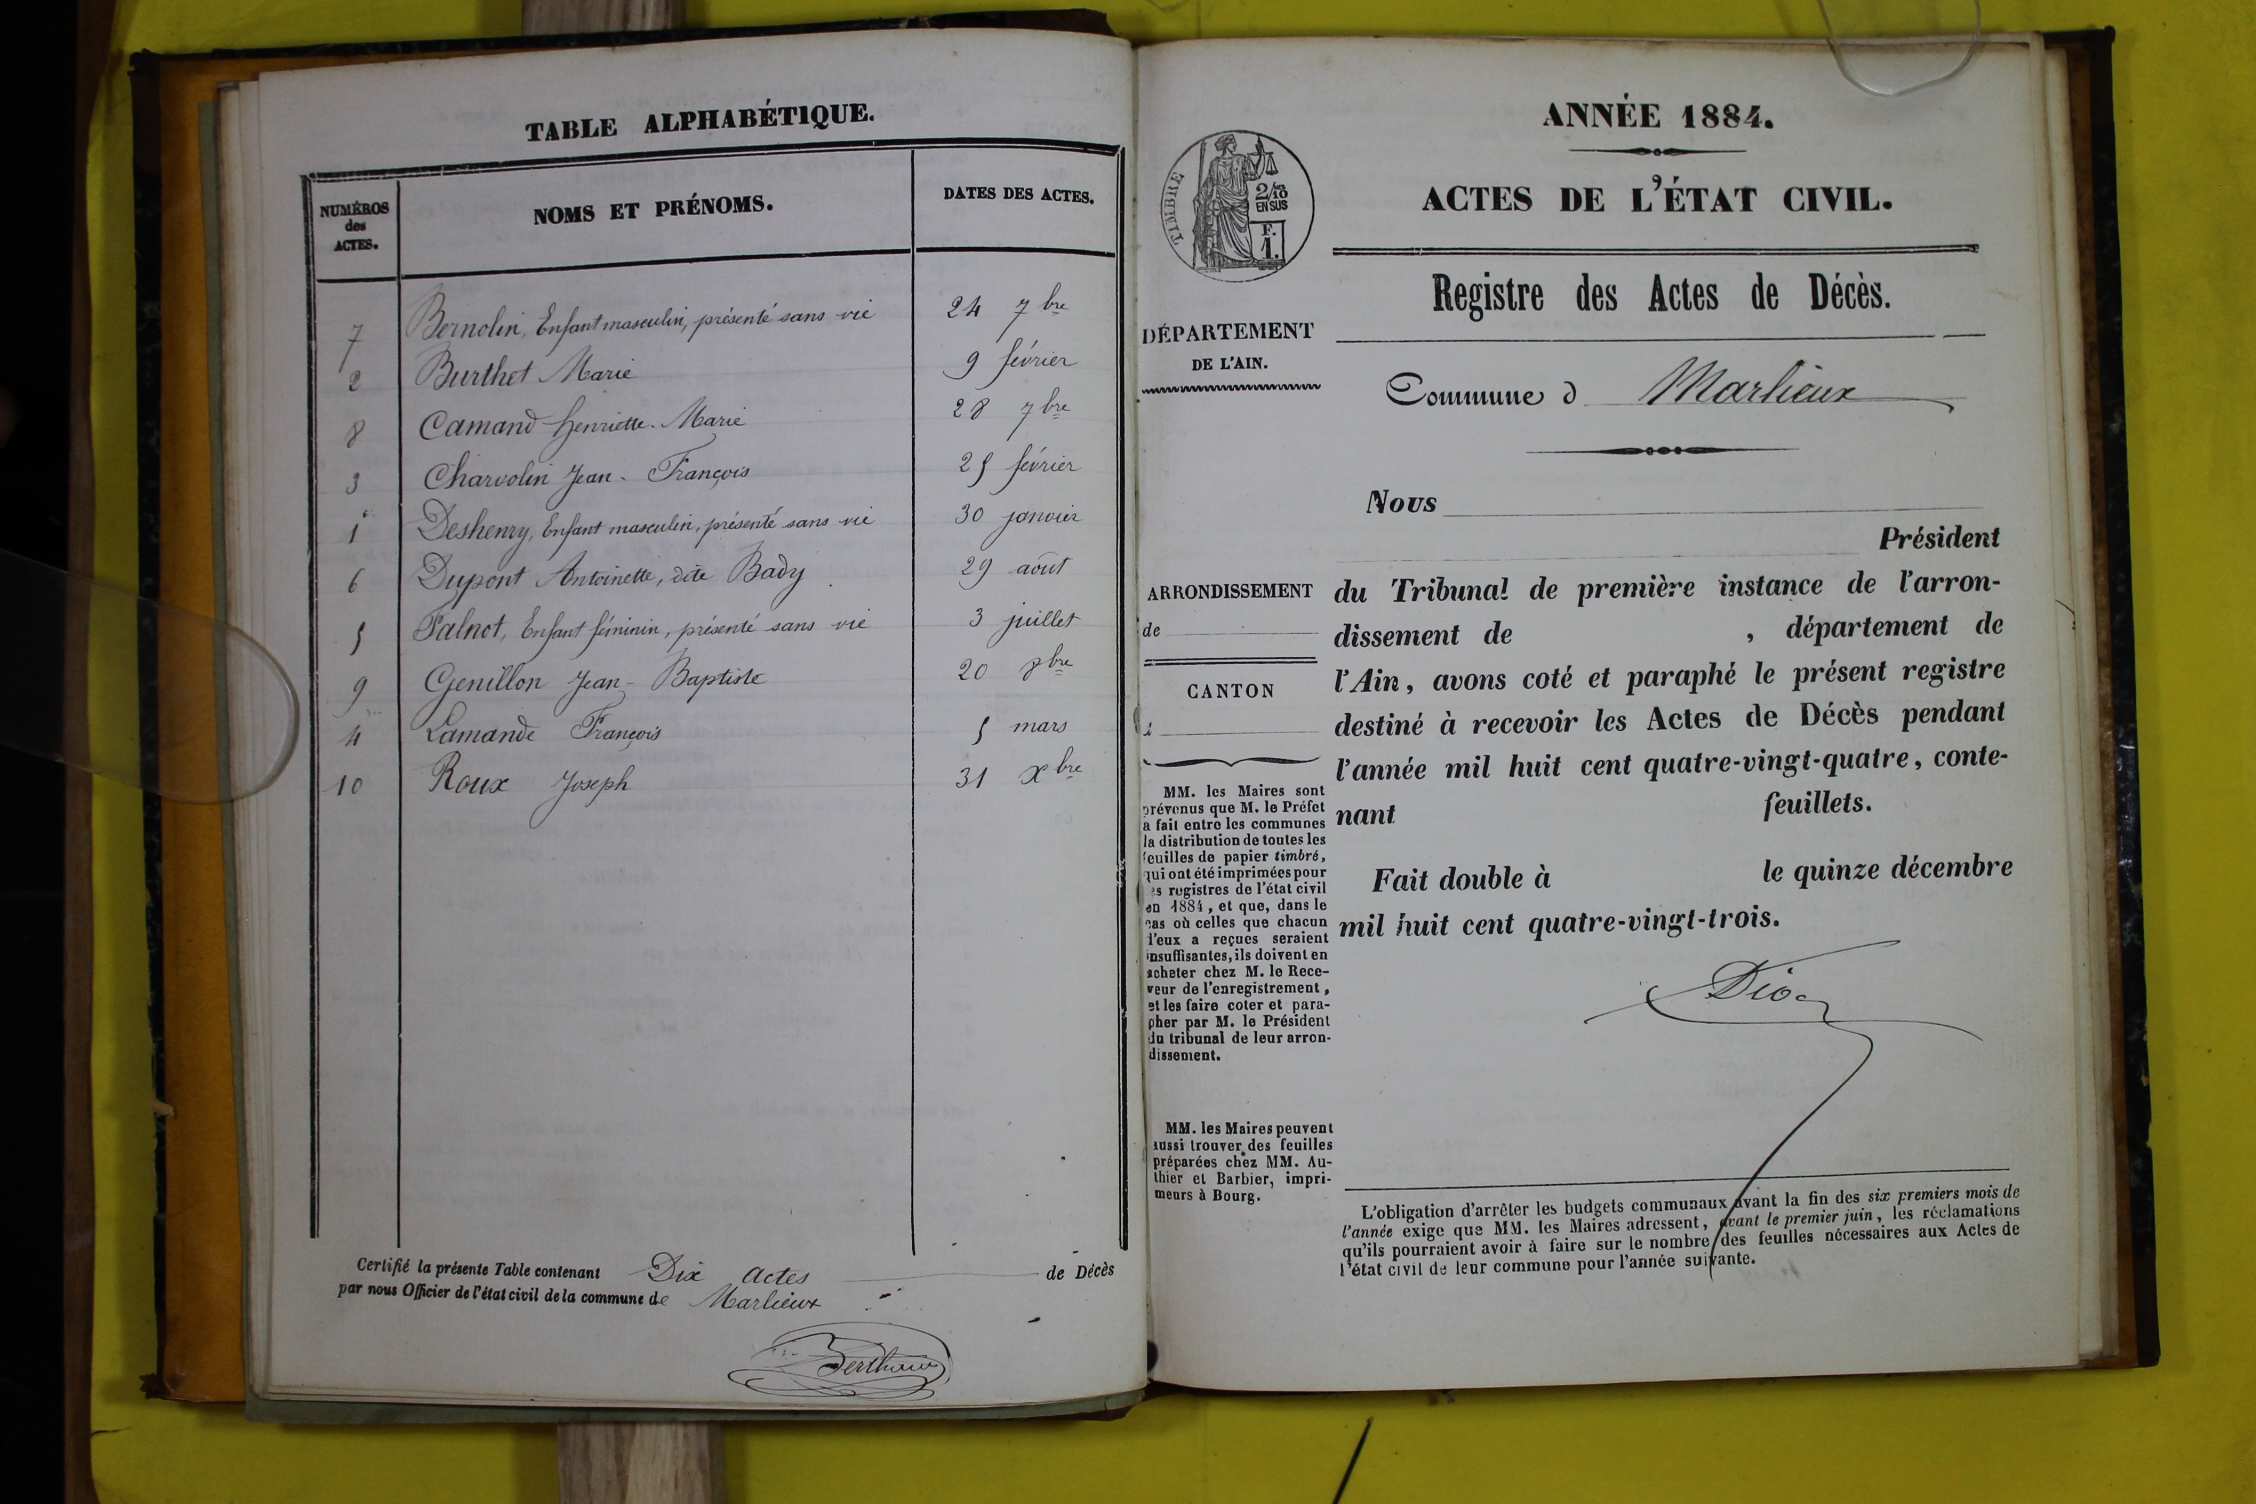 TABLE ALPHABÉTIQUE.
NUMÉROS des ACTES.
NOMS ET PRÉNOMS.
DATES DES ACTES.
7 Bernolin, Enfant masculin, présenté sans vie 24 7bre
2 Burthet Marie 9 février
8 Camand Henriette-Marie 28 7bre
3 Charvolin Jean-François 25 février
1 Deshenry, Enfant masculin, présenté sans vie 30 janvier
6 Dupont Antoinette, dite Bady 29 août
5 Falnot, Enfant féminin, présenté sans vie 3 juillet
9 Genillon Jean-Baptiste 20 8bre
4 Lamande François 5 mars
10 Roux Joseph 31 Xbre
Certifié la présente Table contenant Dix actes de Décès
par nous Officier de l'état civil de la commune de Marlieux
TIMBRE
2/10 EN SUS
F. 1.
DÉPARTEMENT
DE L'AIN.
ARRONDISSEMENT
de
CANTON
MM. les Maires sont
prévenus que M. le Préfet
a fait entre les communes
la distribution de toutes les
feuilles de papier timbré,
qui ont été imprimées pour
les registres de l'état civil
en 1884, et que, dans le
cas où celles que chacun
d'eux a reçues seraient
insuffisantes, ils doivent en
acheter chez M. le Rece-
veur de l'enregistrement,
et les faire coter et para-
pher par M. le Président
du tribunal de leur arron-
dissement.
MM. les Maires peuvent
aussi trouver des feuilles
préparées chez MM. Au-
thier et Barbier, impri-
meurs à Bourg.
ANNÉE 1884.
ACTES DE L'ÉTAT CIVIL.
Registre des Actes de Décès.
Commune d Marlieux
Nous
Président
du Tribunal de première instance de l'arron-
dissement de , département de
l'Ain, avons coté et paraphé le présent registre
destiné à recevoir les Actes de Décès pendant
l'année mil huit cent quatre-vingt-quatre, conte-
nant feuillets.
Fait double à le quinze décembre
mil huit cent quatre-vingt-trois.
L'obligation d'arrêter les budgets communaux avant la fin des six premiers mois de
l'année exige que MM. les Maires adressent, avant le premier juin, les réclamations
qu'ils pourraient avoir à faire sur le nombre des feuilles nécessaires aux Actes de
l'état civil de leur commune pour l'année suivante.